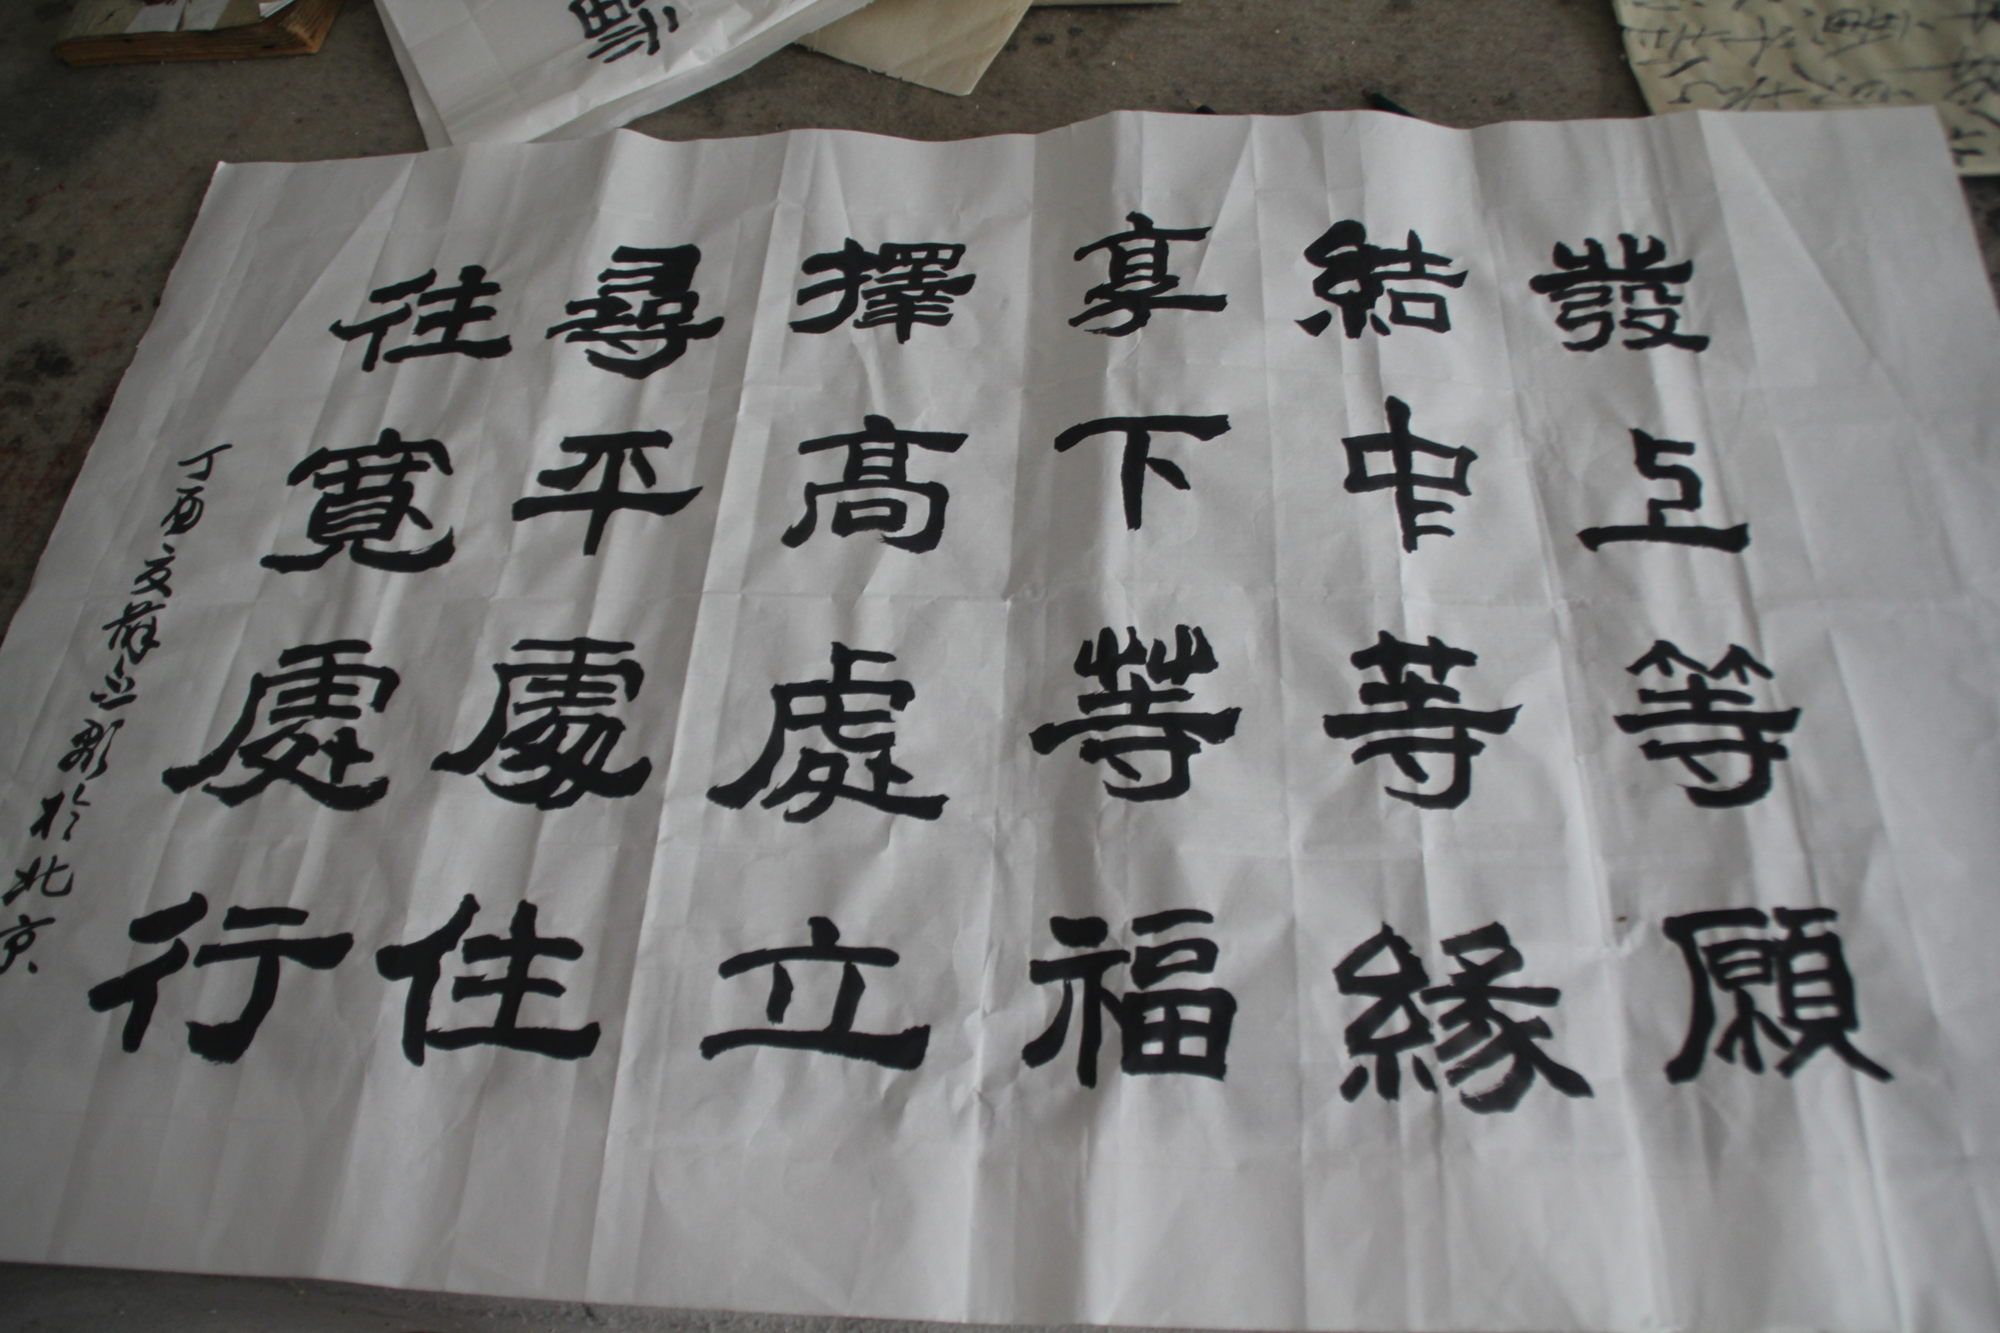 發上等願
結中等緣
享下等福
擇高處立
尋平處住
往寬處行
丁酉文群立彩於北京